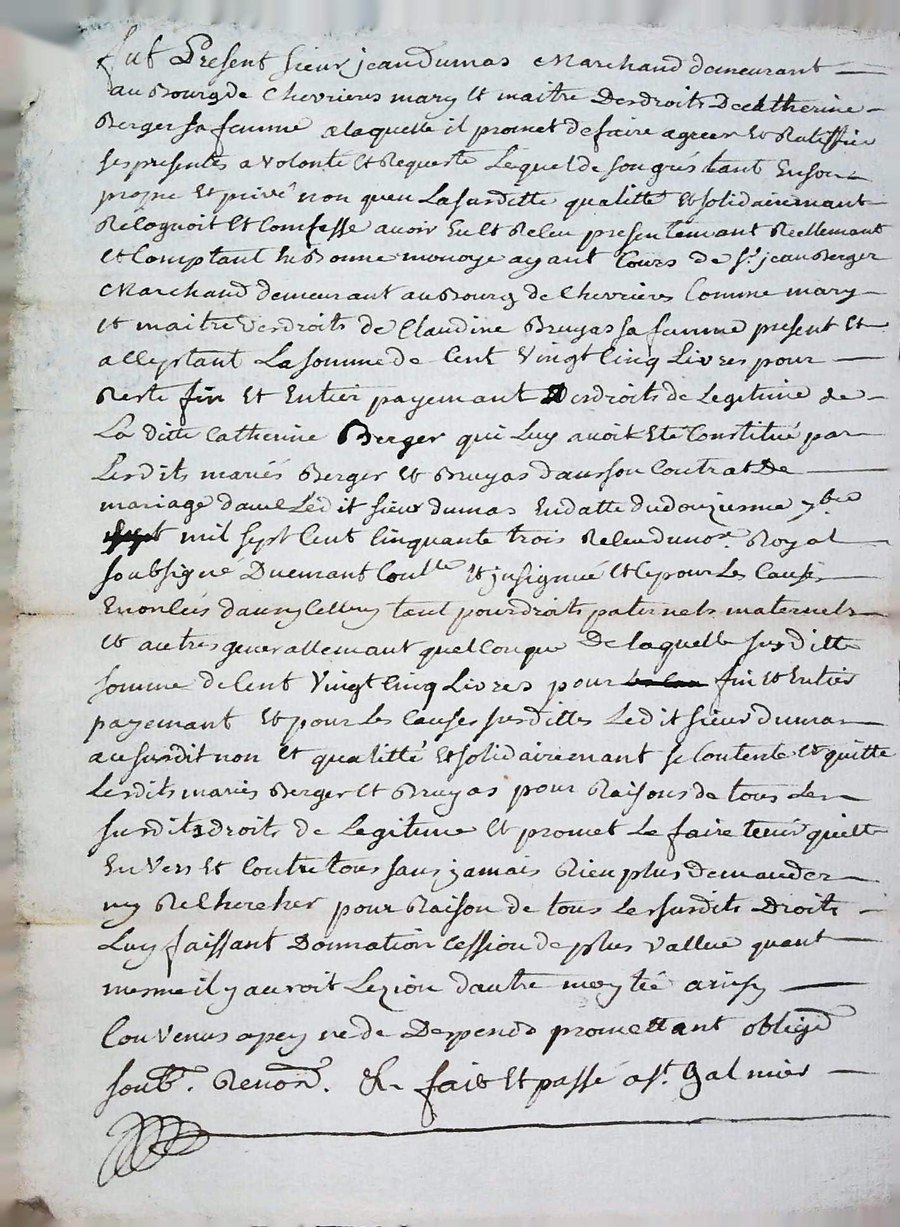 fut Present sieur jean dumas Marchand demeurant
au Bourg de Chevrieres mary et maitre Des droits De Catherine
Berger sa femme a laquelle il promet de faire agreer et Rattiffier
ses presentes a volonté et Requeste Lequel de son gré tant En son
propre et privé non quen La susditte qualitté et solidairemant
Reconnoit et Comfesse avoir Eu et Receu presentemant Reellemant
et Comptant En Bonne monoye ayant Cours de Sr. jean Berger
Marchand demeurant au Bourg de Chevrieres Comme mary
et maitre des droits de Claudine Bruyas sa femme present et
acceptant La somme de Cent Vingt Cinq Livres pour
Reste fin et Entier payemant Des droits de Legitime de
La ditte Catherine Berger qui Luy avoit Eté Constitué par
Lesdits mariés Berger et Bruyas dans son Contrat De
mariage davec Ledit sieur dumas En datte du douziesme 7bre
mil sept Cent Cinquante trois Receu du nore. Royal
soubsigné Duemant Conllé et jnsignué et Ce pour Les Causes
Enoncés dans yCelluy tant pour droits paternels maternels
et autres generallemant quelConque De laquelle susditte
somme de Cent Vingt Cinq Livres pour fin et Entier
payemant et pour Les Causes susdittes Ledit sieur dumas
au susdit non et qualitté et solidairemant se Contente et quitte
Lesdits mariés Berger et Bruyas pour Raisons de tous Les
susdits droits de Legitime et promet Le faire tenir quitte
En Vers et Contre tous sans jamais Rien plus demander
ny ReCherCher pour Raison de tous Les susdits Droits
Luy faissant Donnation Cession de plus Vallue quant
mesme il y auroit Lezion dautre moytié ainsy
Convenus a peyne de Despends promettant obligd
soub. Renond. &c fait et passé a St. Galmier